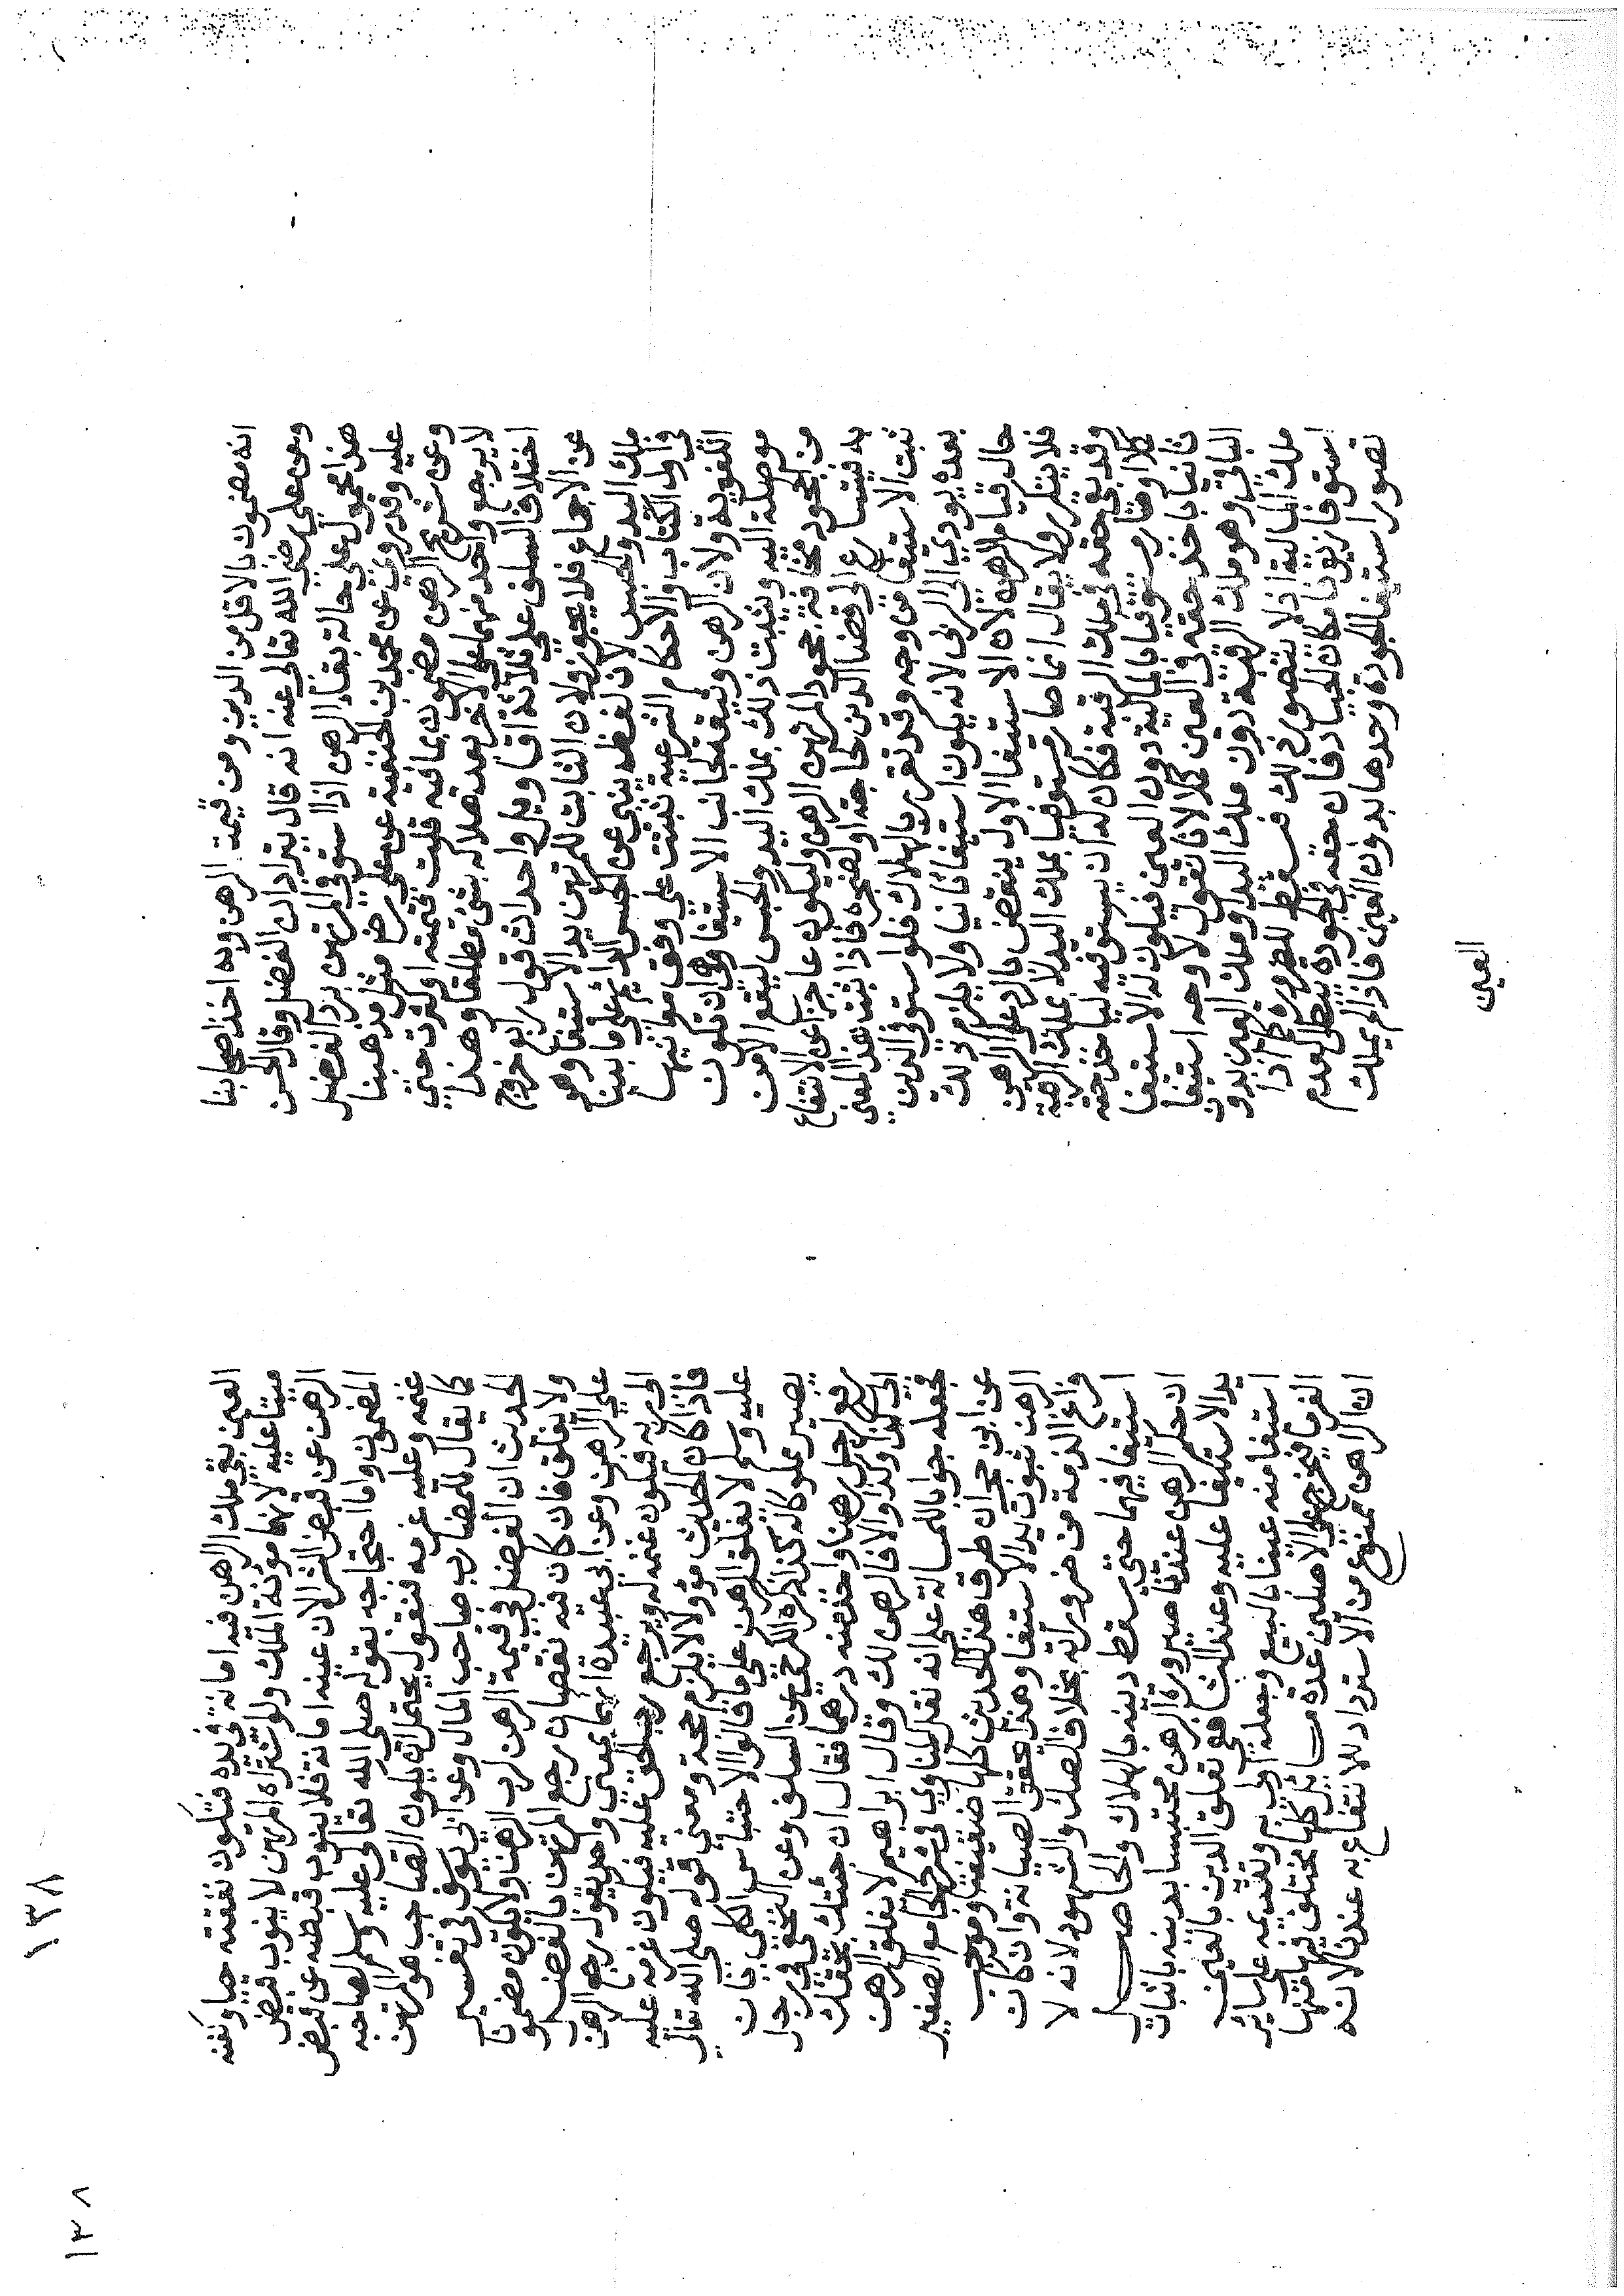 انه مضمون بالاقل من الدين ومن قيمت الرهن وبه اخذ اصحابنا
وعن علي رضي الله تعالى عنه انه قال يترادان الفضل وقال الحسن
هذا محمول على حالة بقاء الرهن اذا استوفى المرتهن يرد الفضل
عليه وقد روي عن محمد بن الحنفية عن علي رض مثل مذهبنا
وعن شريح الرهن مضمون بما فيه قلت قيمته او كثرت حتى
لا يرجع واحد منهما على الاخر بعد هلاكه بشئ مطلقا وهذا
اختلاف السلف على ثلاثة اقاويل واحداث قول رابع خروج
عن الاجماع فلا يجوز ولان الثابت للمرتهن يد الاستيفا وهو
ملك اليد والحبس لان لفظه ينبي عن الحبس الدائم على ما بينا
في اول الكتاب والاحكام الشرعية تثبت على وفق معانيها
اللغوية ولان الرهن وثيقة لجانب الاستيفا وهو ان تكون
موصلة اليه ويثبت ذلك بملك اليد والحبس ليقع الامن
من الجحود مخافة جحود المرتهن الرهن وليكون عاجزا عن الانتفاع
به فيتسارع الى قضا الدين لحاجته او لضجره فاذا ثبت هذا المعنى
ثبت الاستيفا من وجه وقد تقرر بالهلاك فلو استوفى الدين
بعده يودي الى الربى لانه يكون استيفا ثانيا ولا يلزم ذلك
حال قيام الرهن لان الاستيفا الاول ينتقض بالرد على الراهن
فلا يتكرر ولا يقال انما صار مستوفيا بملك اليد لا بملك الرقبة
وقد بقي حقه في ملك الرقبة فكان له ان يستوفيه لياخذ حقه
كملا او صار مستوفيا بالمالية دون العين فيكون له الاستيفا
ثانيا باخذ حقه في العين كملا لانا نقول لا وجه استيفا
الباقي وهو ملك الرقبة دون ملك اليد او ملك العين بدون
ملك المالية اذ لا يتصور ذلك فسقط للضرورة كما اذا
استوفا زيوفا مكان الجياد فان حقه في الجودة يبطل لعدم
تصور استيفا الجودة وحدها بدون العين فاذا لم يملك
العين
العين بقي ملك الراهن فيه امانة في يده فتكون نفقته حيا وكفنه
ميتا عليه لانها مؤنة الملك ولو اشتراه المرتهن لا ينوب قبض
الرهن عن قبض الشرا لان عينه امانة فلا ينوب قبضه عن قبض
المضمون واما احتجاجه بقوله صلى الله تعالى عليه وسلم لصاحبه
غنمه وعليه غرمه فنقول يحتمل ان يكون الصاحب هو المرتهن
كما يقال للمضارب صاحب المال وعن ابي يوسف في تفسير
الحديث ان الفضل في قيمة الرهن لرب الرهن ولا يكون مضمونا
ولا يغلق فان كان فيه نقصان رجع المرتهن بالفضل
على الراهن وعن ابي عبيدة انهما بمعنى واحد يقول يرجع الرهن
الى ربه فيكون غنمه له ويرجع رب الحق عليه فيكون غرمه عليه
فاذا كان الحديث مؤولا لا يلزم حجة ومعنى قوله صلى الله تعالى
عليه وسلم لا يغلق الرهن على ما قالوا الاحتباس الكلي بان
يصير مملوكا له كذا ذكره الكرخي عن السلف وعن النخعي في رجل
رفع لرجل رهنا واخذ منه درهما فقال ان جئتك بحقك
الى كذا وكذا والا فالرهن لك وقال ابراهيم لا يغلق الرهن
فجعله جوابا للمسالة على انه نقل المناوي في شرح الجامع الصغير
عن ابن حجر ان طرق هذا الحديث كلها ضعيفة وموجب
الرهن ثبوت يد الاستيفا وهذا يحقق الصيانة وان كان
فراغ الذمة من ضروراته بخلاف الصك والشهود لانه لا
استيفا فيهما حتى يسقط دينه بالهلاك والحاصل
ان حكم الرهن عندنا صيرورة الرهن محتبسا بدينه باثبات
يد الاستيفا عليه وعند الشافعي تعلق الدين بالعين
استيفا منه عينا بالبيع وجعله اولى به وتقديمه على سائر
الغرما فيخرج على الاصلين عدة مسائل كلها مختلف فيها منها
ان الراهن ممنوع من الاسترداد للانتفاع به عندنا لانه
١٣٨
١٣٨